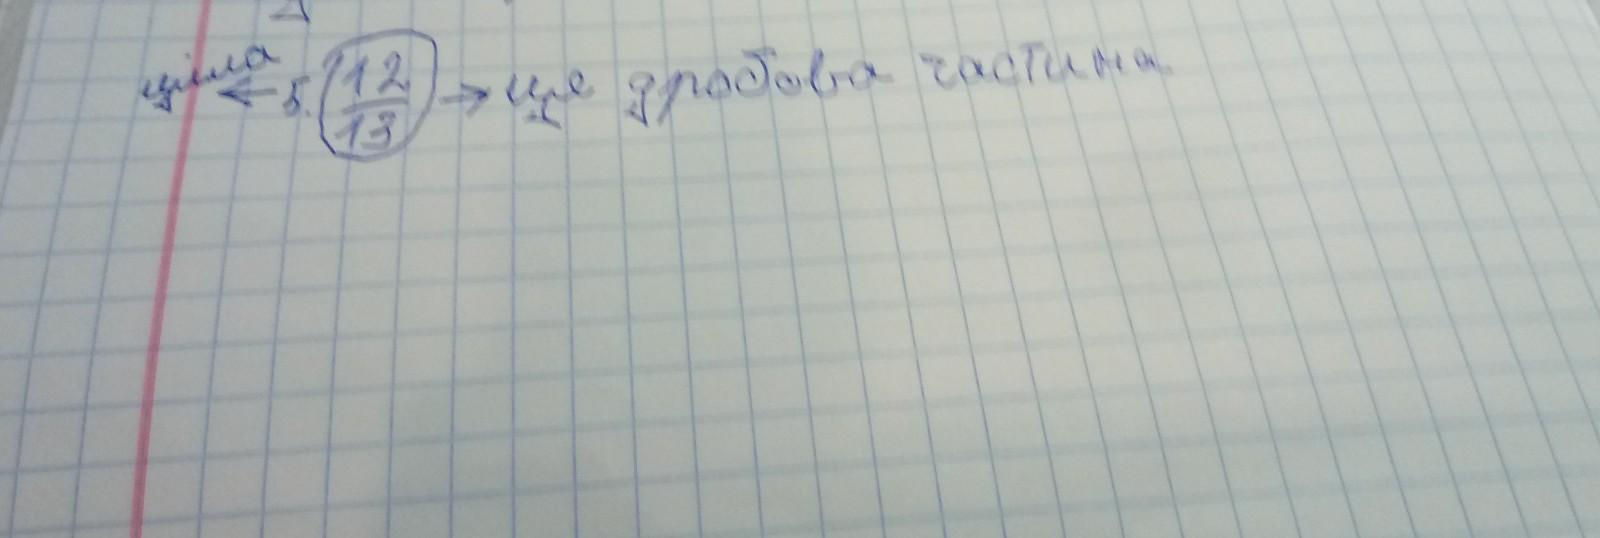 ціла ← 5 12/13 → це дробова частина